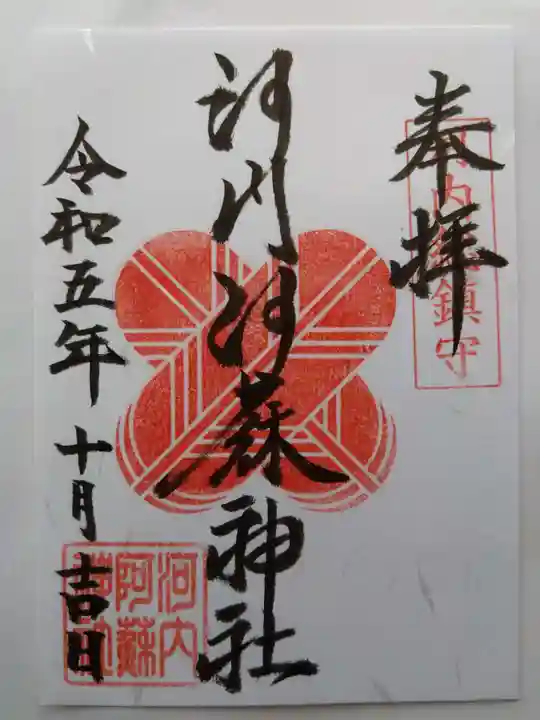 奉拝
河内阿蘇神社
令和五年十月吉日
内
鎮守
河内
阿蘇